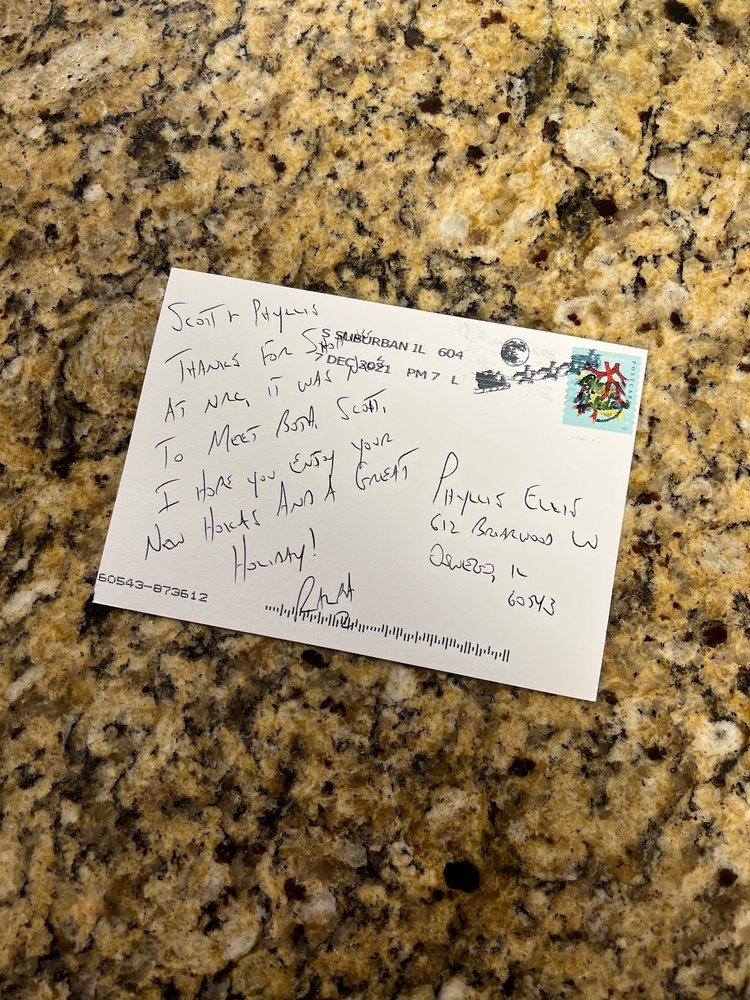 SCOTT & PHYLLIS
THANKS FOR
AT NRC, IT WAS
TO MEET BOTH, SCOTT.
I HOPE YOU ENJOY YOUR
NEW HOKAS AND A GREAT
HOLIDAY!
S SUBURBAN IL 604
7 DEC 2021 PM 7 L
POSTCARD
PHYLLIS ELLIS
612 BRIARWOOD LN
OSWEGO, IL
60543
60543-873612